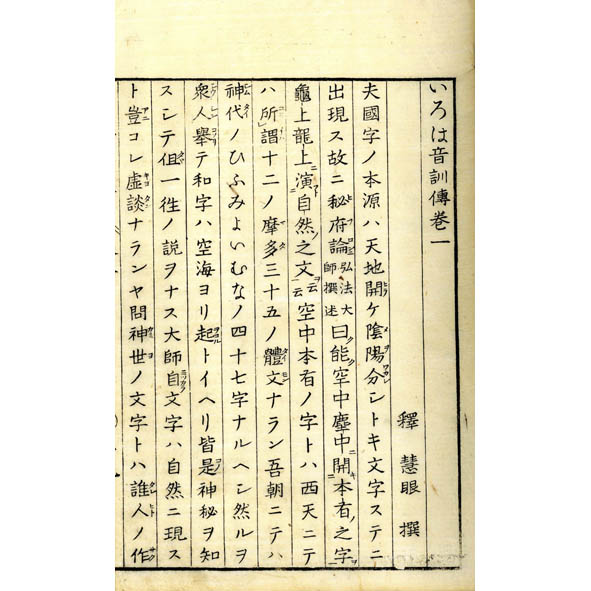 いろは音訓傳巻一
釋慧眼撰
夫國字ノ本源ハ天地開ケ陰陽分シトキ文字ステニ
出現ス故ニ秘府論弘法大師撰述曰能空中塵中開本有之字
龜上龍上演自然之文云云空中本有ノ字トハ西天ニテ
ハ所謂十二ノ摩多三十五ノ體文ナラン吾朝ニテハ
神代ノひふみよいむなノ四十七字ナルヘシ然ルヲ
衆人舉テ和字ハ空海ヨリ起トイヘリ皆是神秘ヲ知
スシテ伹一徃ノ説ヲナス大師自文字ハ自然ニ現ス
ト豈コレ虚談ナランヤ問神世ノ文字トハ誰人ノ作